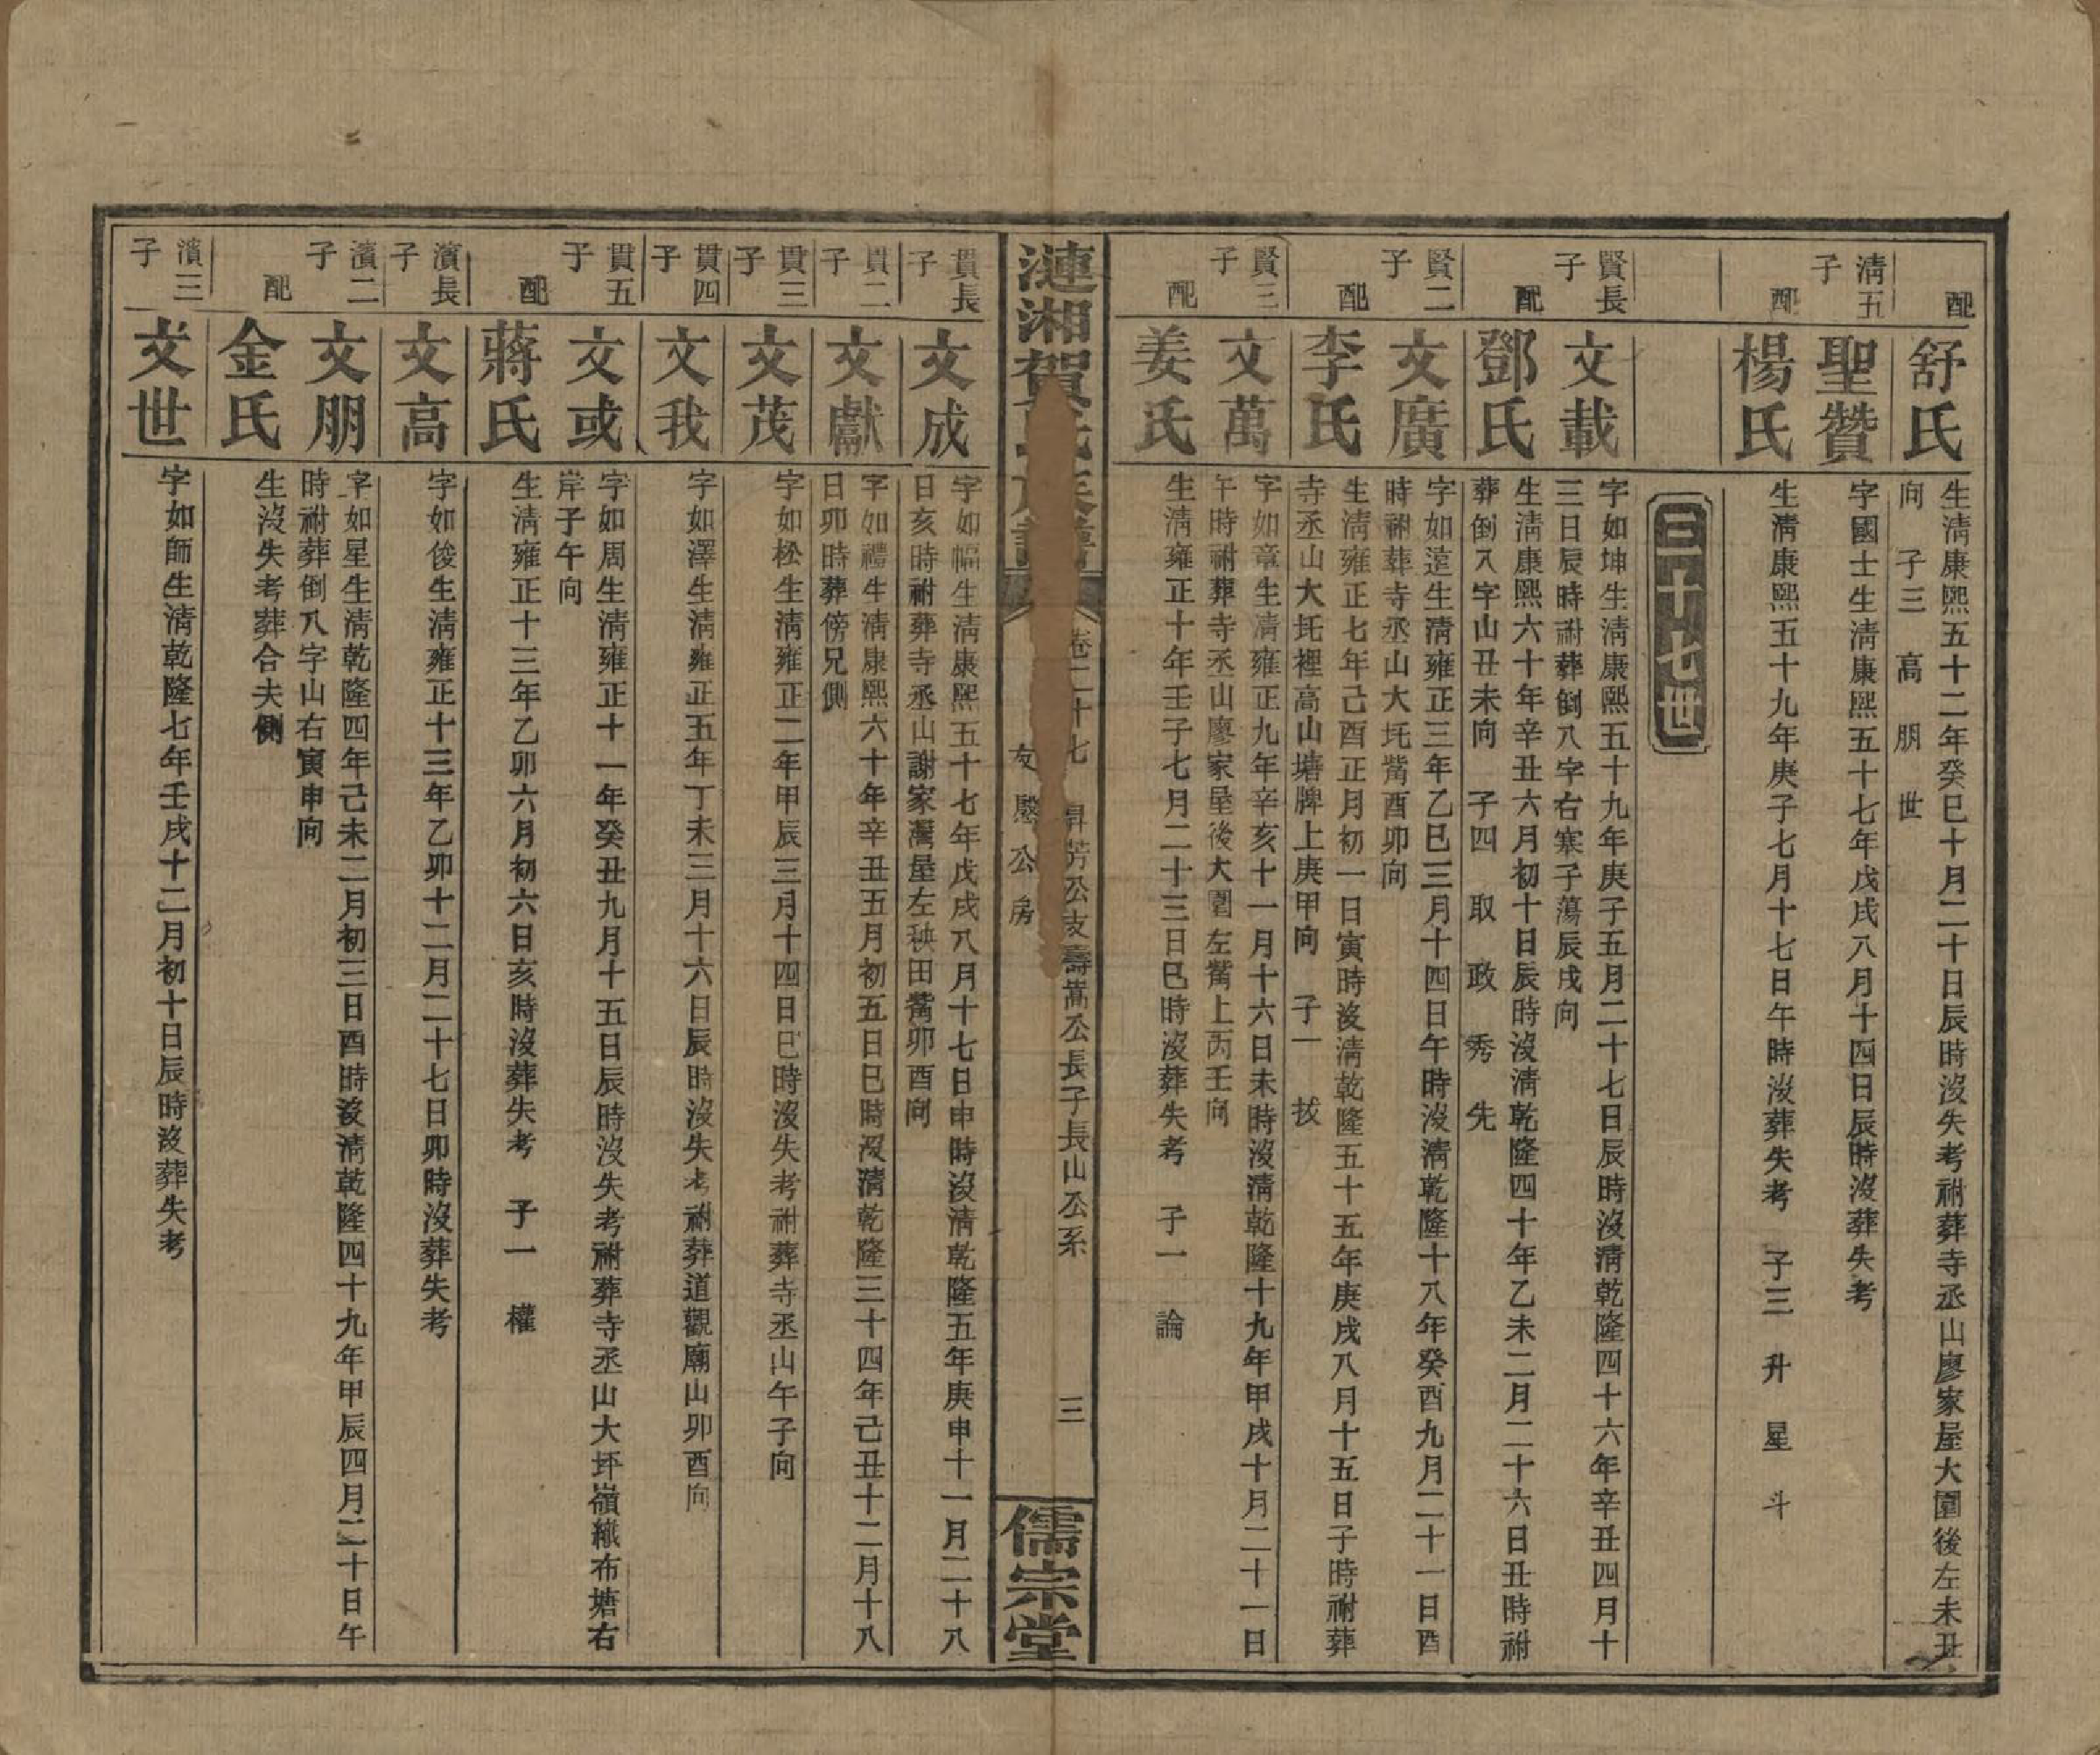 配
舒氏
生清康熙五十二年癸巳十月二十日辰時沒失考祔葬寺丞山廖家屋大園後左未丑
向　子三　高　朋　世
清五子
聖贊
字國士生清康熙五十七年戊戌八月十四日辰時沒葬失考
配
楊氏
生清康熙五十九年庚子七月十七日午時沒葬失考　子三　升　星　斗
三十七世
賢長子
文載
字如坤生清康熙五十九年庚子五月二十七日辰時沒清乾隆四十六年辛丑四月十
三日辰時祔葬倒八字右寨子蕩辰戌向
配
鄧氏
生清康熙六十年辛丑六月初十日辰時沒清乾隆四十年乙未二月二十六日丑時祔
葬倒入字山丑未向　子四　取　政　秀　先
賢二子
文廣
字如遠生清雍正三年乙巳三月十四日午時沒清乾隆十八年癸酉九月二十一日酉
時祔葬寺丞山大坉嘴酉卯向
配
李氏
生清雍正七年己酉正月初一日寅時沒清乾隆五十五年庚戌八月十五日子時祔葬
寺丞山大坉裡高山塘牌上庚甲向　子一　拔
賢三子
文萬
字如章生清雍正九年辛亥十一月十六日未時沒清乾隆十九年甲戌十月二十一日
午時祔葬寺丞山廖家屋後大園左嘴上丙壬向
配
姜氏
生清雍正十年壬子七月二十三日巳時沒葬失考　子一　論
漣湘賀氏族譜
卷二十七　昇芳公支壽嵩公長子長山公系
友愍公房
三
儒宗堂
貫長子
文成
字如幅生清康熙五十七年戊戌八月十七日申時沒清乾隆五年庚申十一月二十八
日亥時祔葬寺丞山謝家灣屋左秧田嘴卯酉向
貫二子
文獻
字如禮生清康熙六十年辛丑五月初五日巳時沒清乾隆三十四年己丑十二月十八
日卯時葬傍兄側
貫三子
文茂
字如松生清雍正二年甲辰三月十四日巳時沒失考祔葬寺丞山午子向
貫四子
文我
字如澤生清雍正五年丁未三月十六日辰時沒失考祔葬道觀廟山卯酉向
貫五子
文或
字如周生清雍正十一年癸丑九月十五日辰時沒失考祔葬寺丞山大坪嶺織布塘右
岸子午向
配
蔣氏
生清雍正十三年乙卯六月初六日亥時沒葬失考　子一　權
濱長子
文高
字如俊生清雍正十三年乙卯十二月二十七日卯時沒葬失考
濱二子
文朋
字如星生清乾隆四年己未二月初三日酉時沒清乾隆四十九年甲辰四月二十日午
時祔葬倒八字山右寅申向
配
金氏
生沒失考葬合夫側
濱三子
文世
字如師生清乾隆七年壬戌十二月初十日辰時沒葬失考